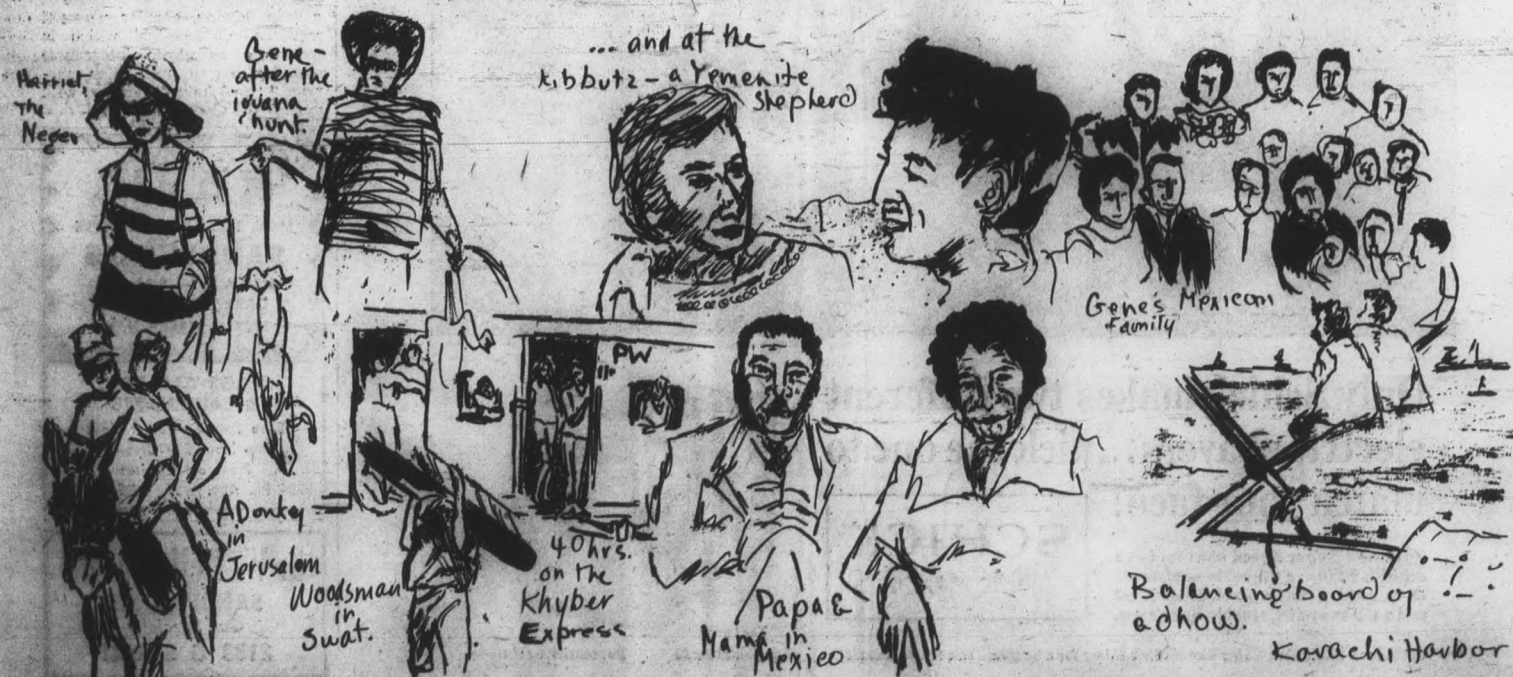 Harriet,
The
Neger
Gene -
after the
iguana
hunt.
... and at the
kibbutz - a Yemenite
shepherd
Gene's Mexican
family
PW
A Donkey
in
Jerusalem
Woodsman
in
Swat.
40 hrs.
on the
Khyber
Express
Papa &
Mama in
Mexico
Balancing board of
a dhow.
Karachi Harbor